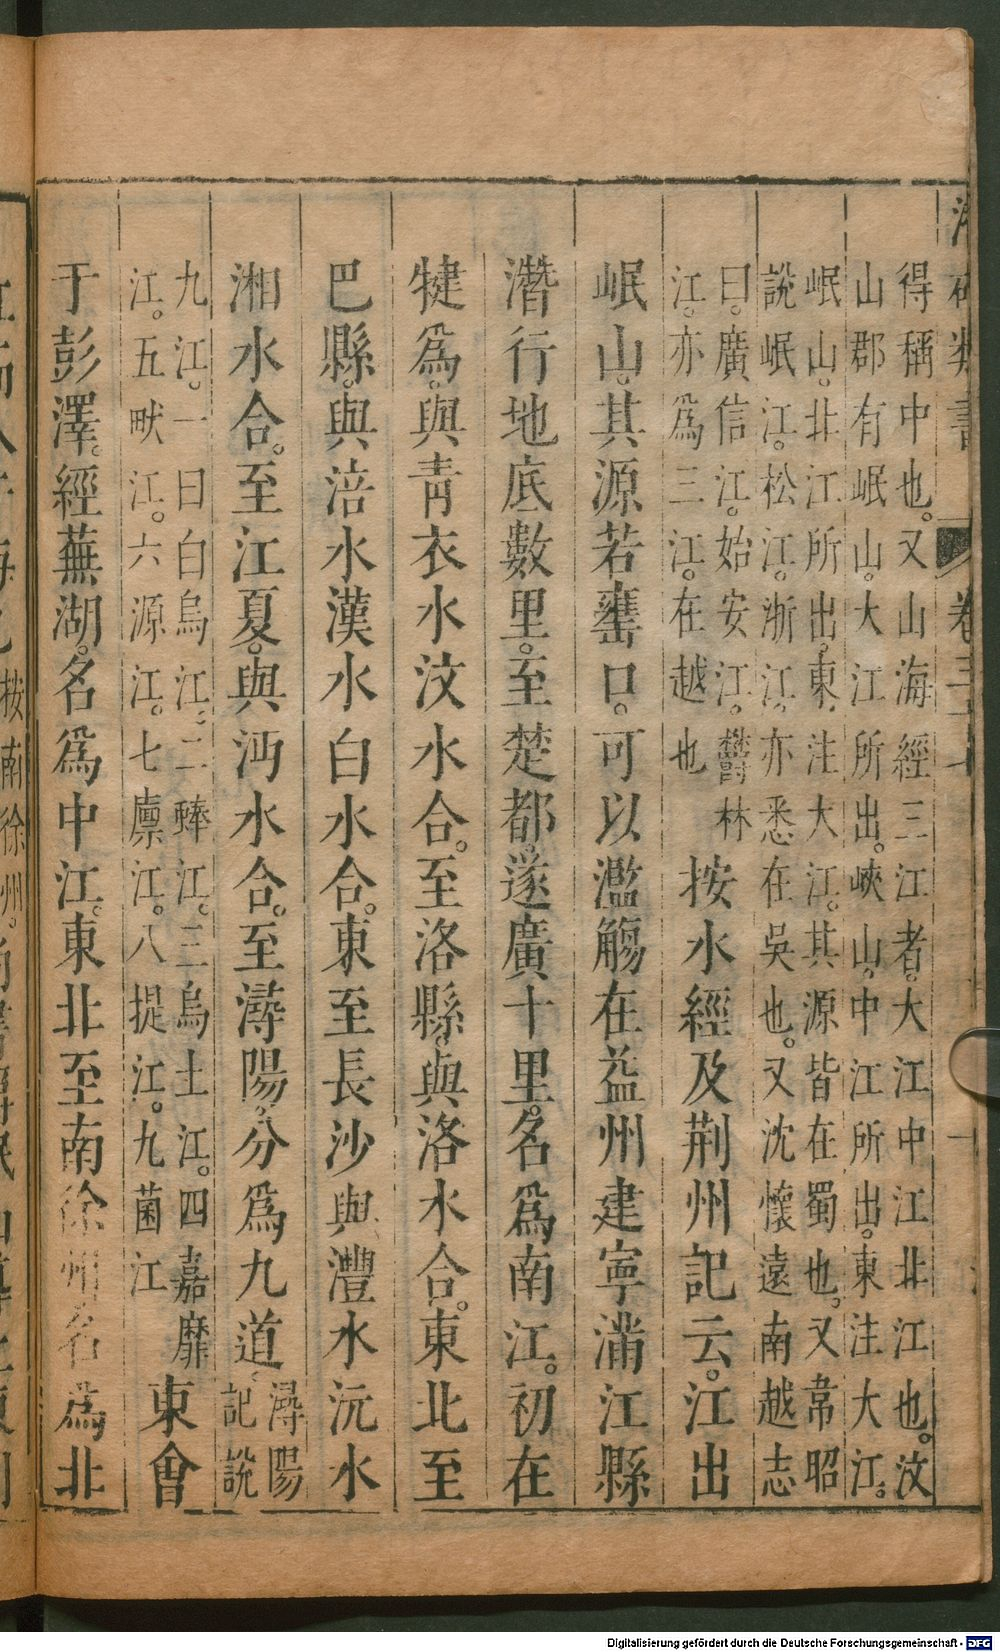 卷三十七
得稱中也。又山海經三江者。大江中江北江也。汶
山郡有岷山。大江所出。峽山。中江所出。東注大江。
岷山。北江所出。東注大江。其源皆在蜀也。又韋昭
說岷江。松江。浙江。亦悉在吳也。又沈懷遠南越志
曰。廣信江。始安江。欝林
江。亦爲三江。在越也
按水經及荆州記云。江出
岷山。其源若甕口。可以濫觴在益州建寧滿江縣
潛行地底數里。至楚都。遂廣十里。名爲南江。初在
犍爲。與青衣水汶水合。至洛縣。與洛水合。東北至
巴縣。與涪水漢水白水合。東至長沙與澧水沅水
湘水合。至江夏。與沔水合。至潯陽。分爲九道
潯陽
記說
九江。一曰白烏江。二蜯江。三烏土江。四嘉靡
江。五畎江。六源江。七廪江。八提江。九菌江
東會
于彭澤。經蕪湖。名爲中江。東北至南徐州名爲北
按南徐州。
Digitalisierung gefördert durch die Deutsche Forschungsgemeinschaft - DFG